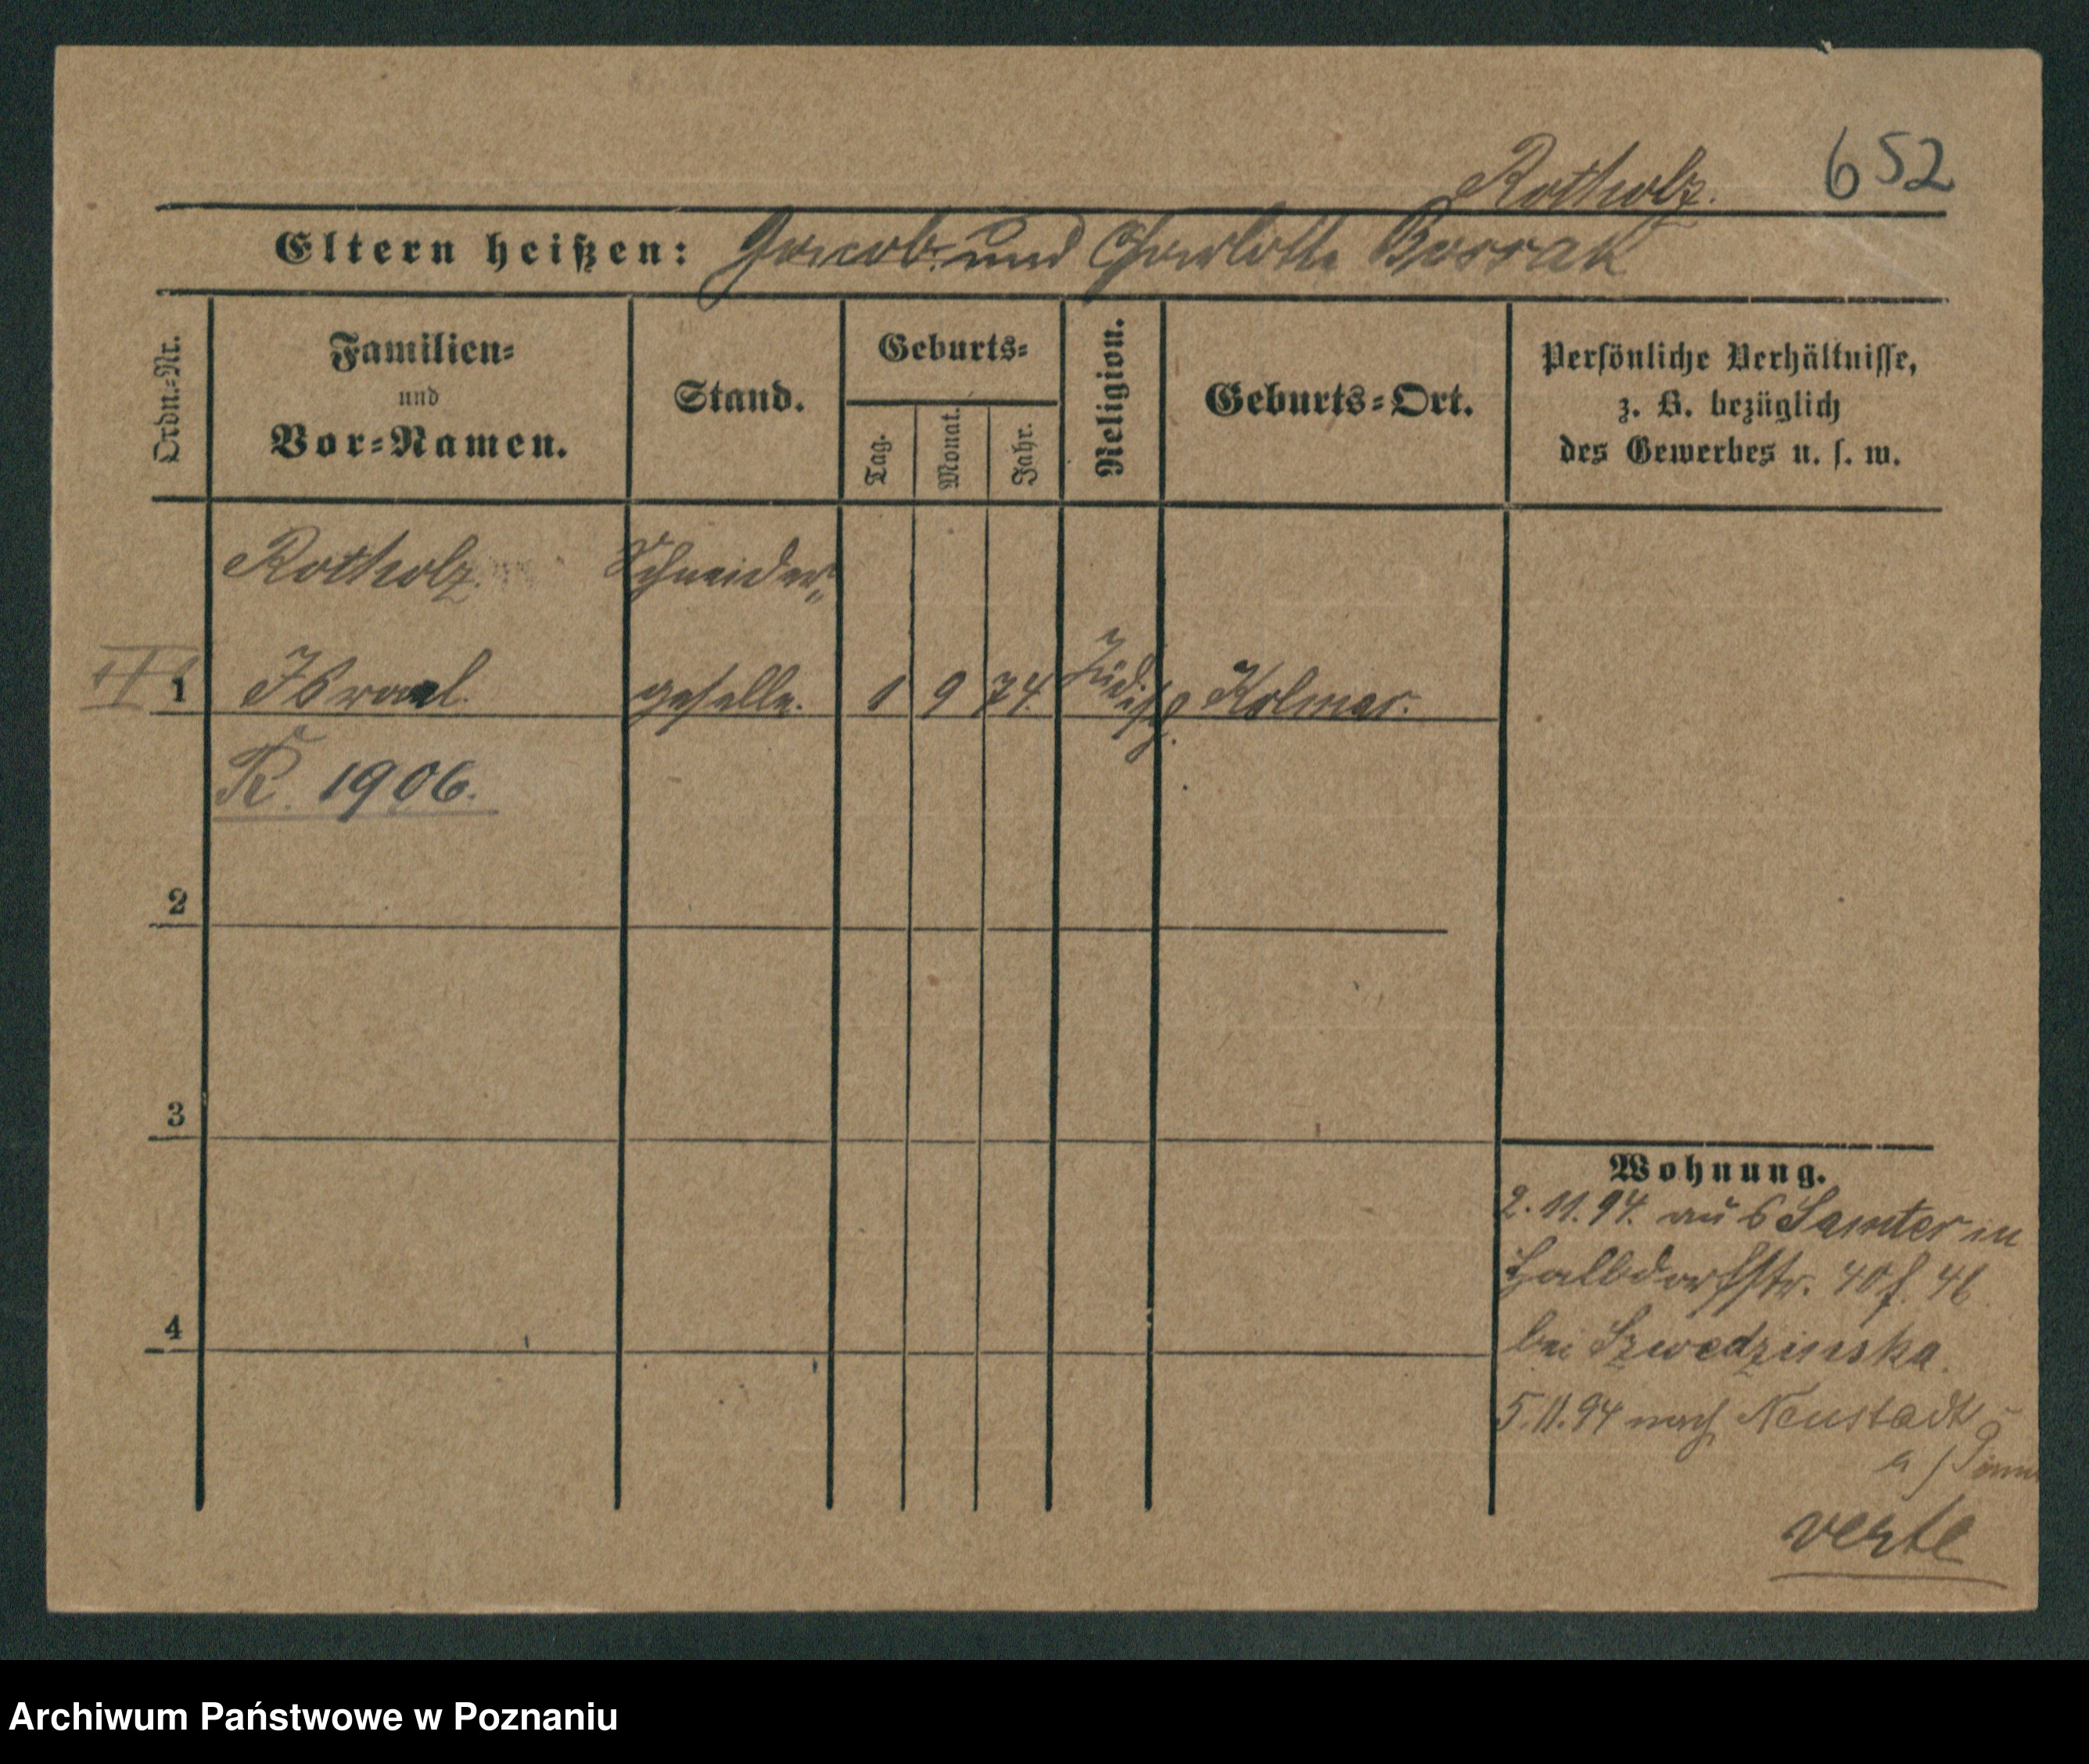 652
Rotholz.
Eltern heißen: Jacob und Charlotte Borrak
Ordn.=Nr.
Familien=
und
Vor=Namen.
Stand.
Geburts=
Tag.
Monat.
Jahr.
Religion.
Geburts=Ort.
Persönliche Verhältnisse,
z. B. bezüglich
des Gewerbes u. s. w.
Rotholz. Schneider„
1 Israel. geselle. 1 9 74. Jüdisch. Kolmar.
R. 1906.
2
3
4
Wohnung.
2.11.94. aus Samter in
Halbdorfstr. 40 f. 46
bei Szwedzinska.
5.11.94 nach Neustadt
a/Pinne
verte
Archiwum Państwowe w Poznaniu